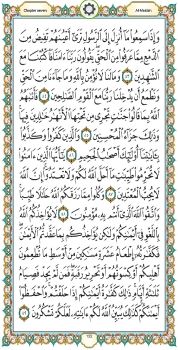 Chapter seven Al-Maidah
وَإِذَا سَمِعُوا۟ مَآ أُنزِلَ إِلَى ٱلرَّسُولِ تَرَىٰٓ أَعْيُنَهُمْ تَفِيضُ مِنَ
ٱلدَّمْعِ مِمَّا عَرَفُوا۟ مِنَ ٱلْحَقِّ يَقُولُونَ رَبَّنَآ ءَامَنَّا فَٱكْتُبْنَا مَعَ
ٱلشَّـٰهِدِينَ ٨٣ وَمَا لَنَا لَا نُؤْمِنُ بِٱللَّهِ وَمَا جَآءَنَا مِنَ ٱلْحَقِّ
وَنَطْمَعُ أَن يُدْخِلَنَا رَبُّنَا مَعَ ٱلْقَوْمِ ٱلصَّـٰلِحِينَ ٨٤ فَأَثَـٰبَهُمُ
ٱللَّهُ بِمَا قَالُوا۟ جَنَّـٰتٍ تَجْرِى مِن تَحْتِهَا ٱلْأَنْهَـٰرُ خَـٰلِدِينَ
فِيهَا وَذَٰلِكَ جَزَآءُ ٱلْمُحْسِنِينَ ٨٥ وَٱلَّذِينَ كَفَرُوا۟ وَكَذَّبُوا۟
بِـَٔايَـٰتِنَآ أُو۟لَـٰٓئِكَ أَصْحَـٰبُ ٱلْجَحِيمِ ٨٦ يَـٰٓأَيُّهَا ٱلَّذِينَ ءَامَنُوا۟
لَا تُحَرِّمُوا۟ طَيِّبَـٰتِ مَآ أَحَلَّ ٱللَّهُ لَكُمْ وَلَا تَعْتَدُوٓا۟ إِنَّ ٱللَّهَ
لَا يُحِبُّ ٱلْمُعْتَدِينَ ٨٧ وَكُلُوا۟ مِمَّا رَزَقَكُمُ ٱللَّهُ حَلَـٰلًا طَيِّبًا
وَٱتَّقُوا۟ ٱللَّهَ ٱلَّذِىٓ أَنتُم بِهِۦ مُؤْمِنُونَ ٨٨ لَا يُؤَاخِذُكُمُ ٱللَّهُ
بِٱللَّغْوِ فِىٓ أَيْمَـٰنِكُمْ وَلَـٰكِن يُؤَاخِذُكُم بِمَا عَقَّدتُّمُ ٱلْأَيْمَـٰنَ
فَكَفَّـٰرَتُهُۥٓ إِطْعَامُ عَشَرَةِ مَسَـٰكِينَ مِنْ أَوْسَطِ مَا تُطْعِمُونَ
أَهْلِيكُمْ أَوْ كِسْوَتُهُمْ أَوْ تَحْرِيرُ رَقَبَةٍ فَمَن لَّمْ يَجِدْ فَصِيَامُ
ثَلَـٰثَةِ أَيَّامٍ ذَٰلِكَ كَفَّـٰرَةُ أَيْمَـٰنِكُمْ إِذَا حَلَفْتُمْ وَٱحْفَظُوٓا۟
أَيْمَـٰنَكُمْ كَذَٰلِكَ يُبَيِّنُ ٱللَّهُ لَكُمْ ءَايَـٰتِهِۦ لَعَلَّكُمْ تَشْكُرُونَ ٨٩